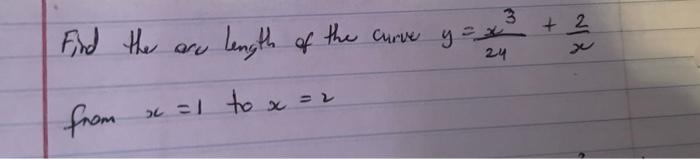 Find the arc length of the curve y = x³/24 + 2/x
from x = 1 to x = 2